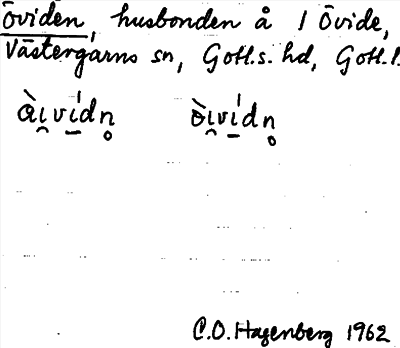 Öviden, husbonden å 1 Övide,
Västergarns sn, Gotl.s. hd, Gotl. l.
ài̯ví̱dn̥ òi̯ví̱dn̥
C.O. Hagenberg 1962